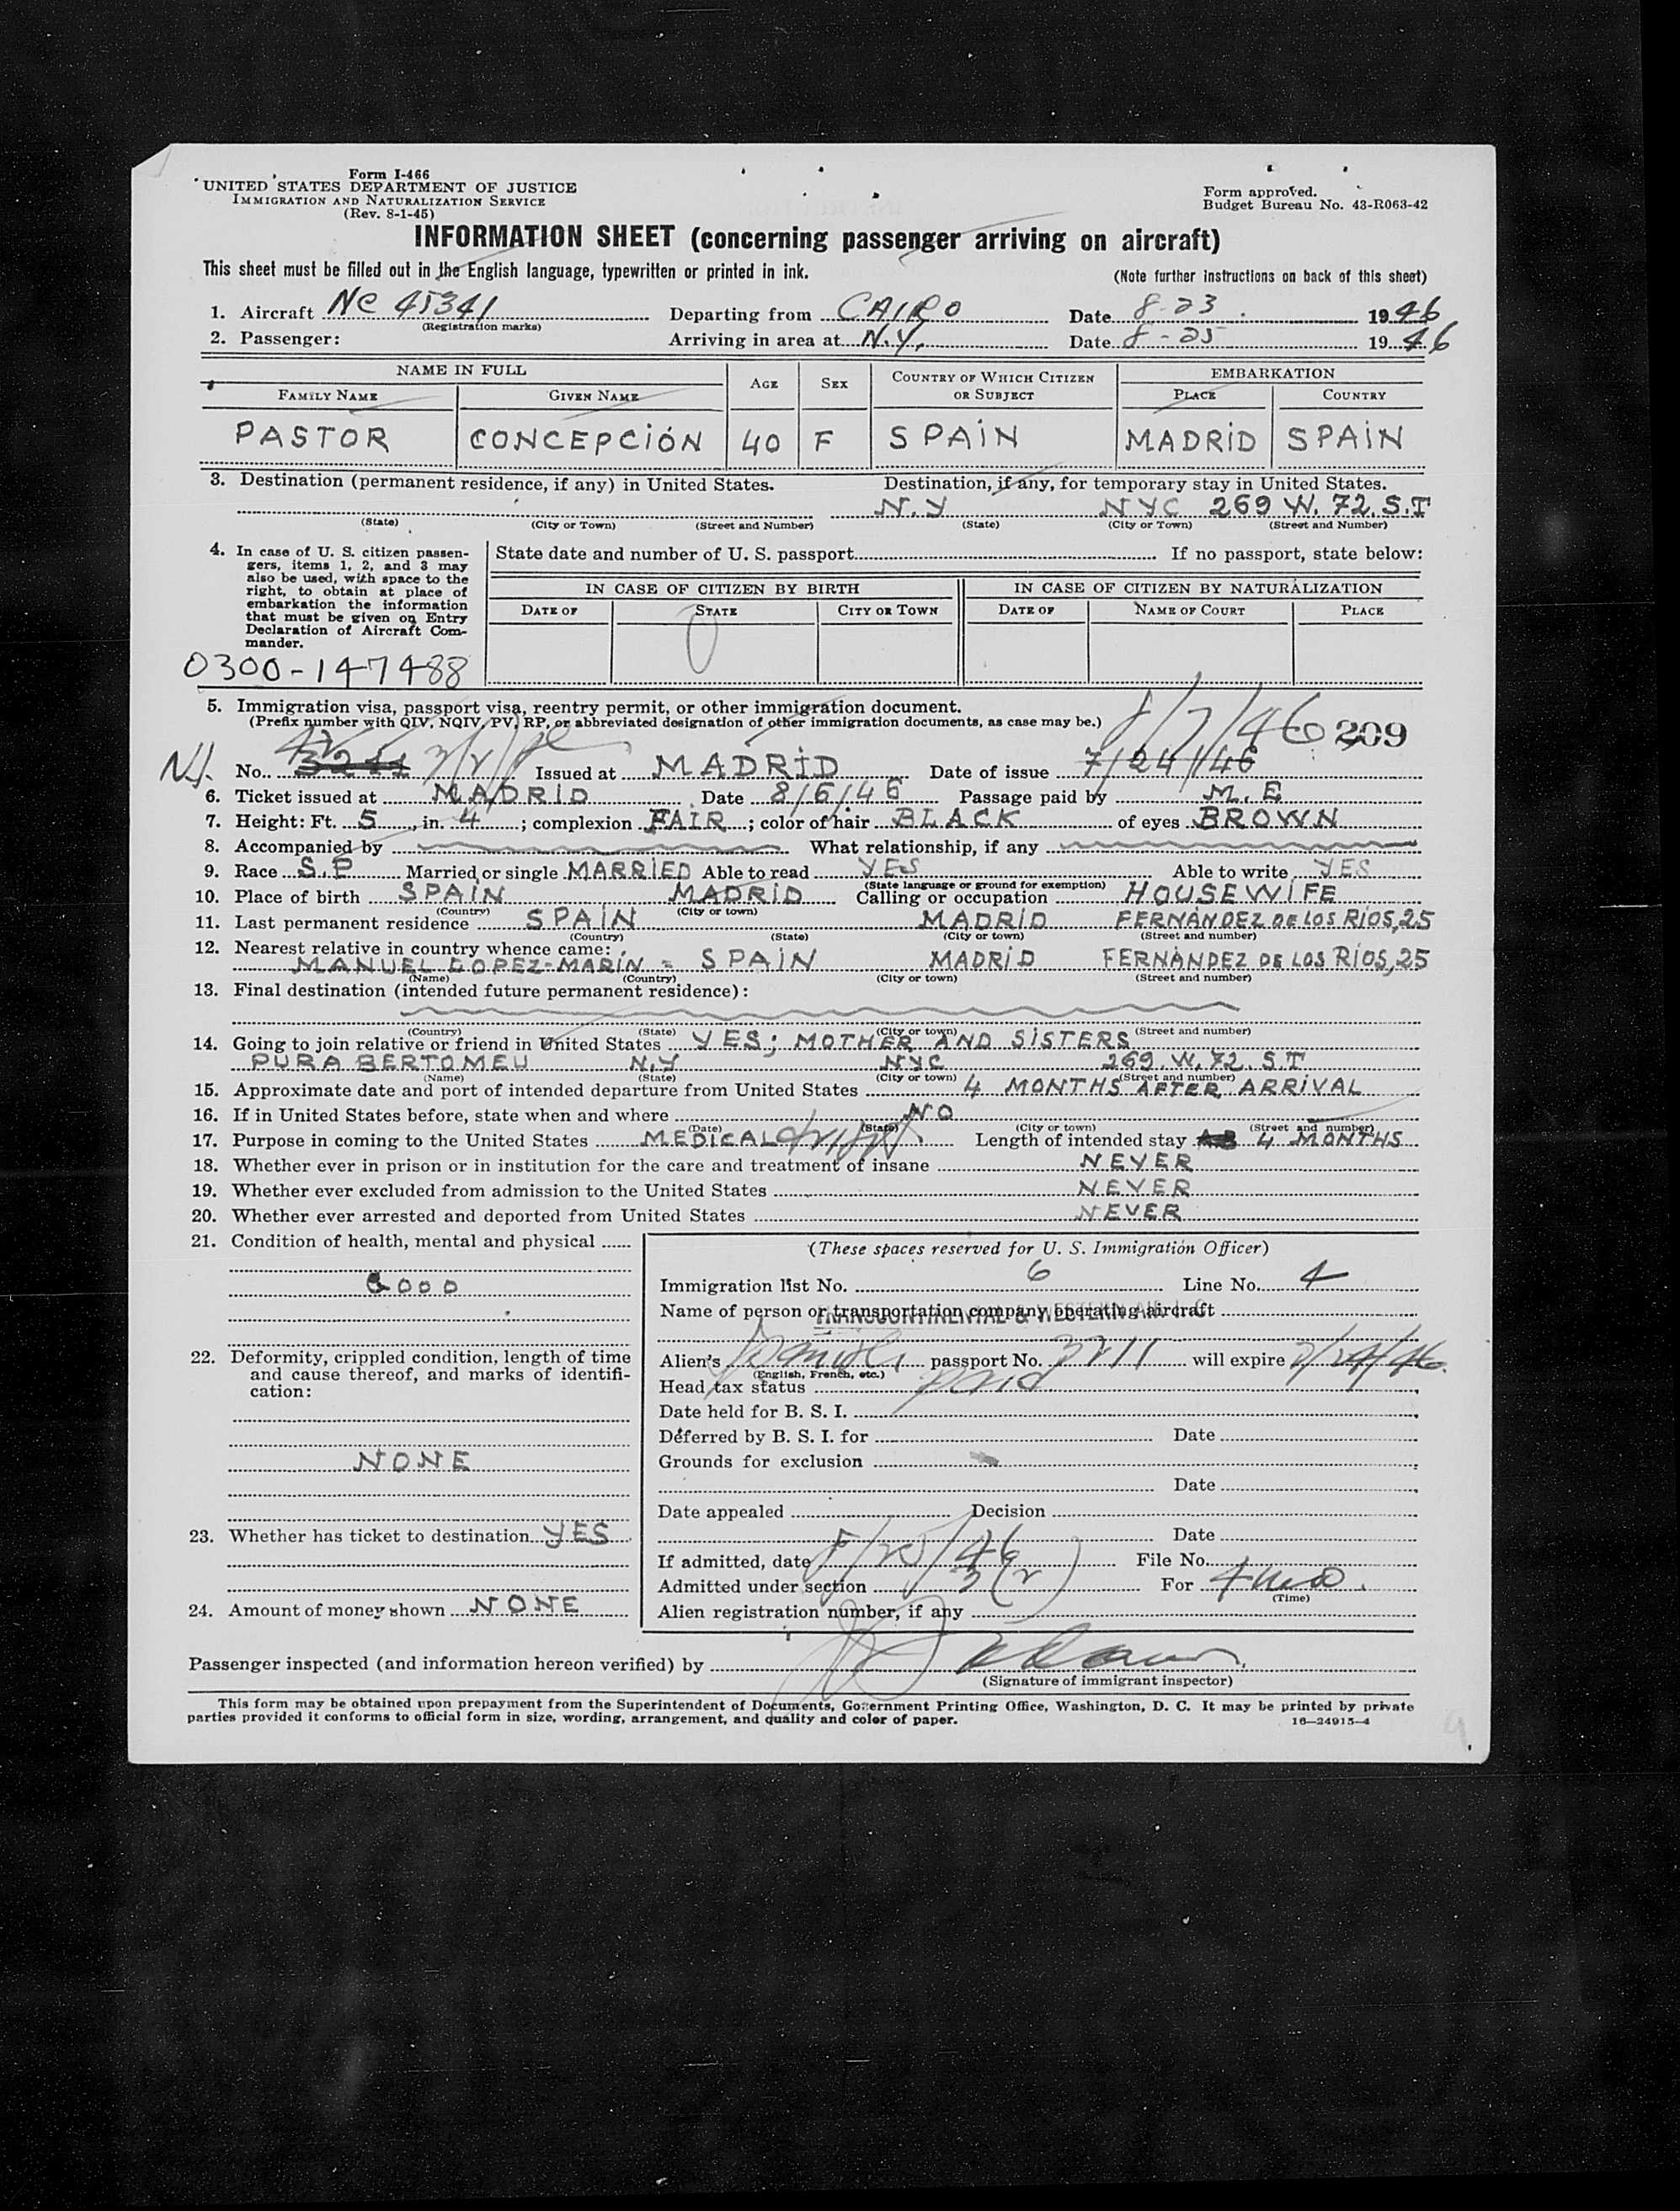 Form I-466
UNITED STATES DEPARTMENT OF JUSTICE
IMMIGRATION AND NATURALIZATION SERVICE
(Rev. 8-1-45)
Form approved.
Budget Bureau No. 43-R063-42
INFORMATION SHEET (concerning passenger arriving on aircraft)
This sheet must be filled out in the English language, typewritten or printed in ink. (Note further instructions on back of this sheet)
1. Aircraft NC 45341 Departing from CAIRO Date 8-23 1946
(Registration marks)
2. Passenger: Arriving in area at N.Y. Date 8-25 1946
NAME IN FULL AGE SEX COUNTRY OF WHICH CITIZEN OR SUBJECT EMBARKATION
FAMILY NAME GIVEN NAME PLACE COUNTRY
PASTOR CONCEPCIÓN 40 F SPAIN MADRID SPAIN
3. Destination (permanent residence, if any) in United States. Destination, if any, for temporary stay in United States.
N.Y NYC 269 W. 72. S.T
(State) (City or Town) (Street and Number) (State) (City or Town) (Street and Number)
4. In case of U. S. citizen passengers, items 1, 2, and 3 may also be used, with space to the right, to obtain at place of embarkation the information that must be given on Entry Declaration of Aircraft Commander.
State date and number of U. S. passport If no passport, state below:
IN CASE OF CITIZEN BY BIRTH IN CASE OF CITIZEN BY NATURALIZATION
DATE OF STATE CITY OR TOWN DATE OF NAME OF COURT PLACE
0300-147488
5. Immigration visa, passport visa, reentry permit, or other immigration document.
(Prefix number with QIV, NQIV, PV, RP, or abbreviated designation of other immigration documents, as case may be.)
8/7/46 209
No. 3211 Issued at MADRID Date of issue 7/24/46
6. Ticket issued at MADRID Date 8/6/46 Passage paid by M.E
7. Height: Ft. 5, in. 4; complexion FAIR; color of hair BLACK of eyes BROWN
8. Accompanied by What relationship, if any
9. Race S.P Married or single MARRIED Able to read YES Able to write YES
(State language or ground for exemption)
10. Place of birth SPAIN MADRID Calling or occupation HOUSEWIFE
(Country) (City or town)
11. Last permanent residence SPAIN MADRID FERNÁNDEZ DE LOS RÍOS, 25
(Country) (State) (City or town) (Street and number)
12. Nearest relative in country whence came:
MANUEL LOPEZ-MARIN = SPAIN MADRID FERNÁNDEZ DE LOS RÍOS, 25
(Name) (Country) (City or town) (Street and number)
13. Final destination (intended future permanent residence):
(Country) (State) (City or town) (Street and number)
14. Going to join relative or friend in United States YES; MOTHER AND SISTERS
PURA BERTOMEU N.Y NYC 269. W. 72. S.T
(Name) (State) (City or town) (Street and number)
15. Approximate date and port of intended departure from United States 4 MONTHS AFTER ARRIVAL
16. If in United States before, state when and where NO
(Date) (State) (City or town) (Street and number)
17. Purpose in coming to the United States MEDICAL Length of intended stay 4 MONTHS
18. Whether ever in prison or in institution for the care and treatment of insane NEVER
19. Whether ever excluded from admission to the United States NEVER
20. Whether ever arrested and deported from United States NEVER
21. Condition of health, mental and physical
GOOD
22. Deformity, crippled condition, length of time and cause thereof, and marks of identification:
NONE
23. Whether has ticket to destination YES
24. Amount of money shown NONE
(These spaces reserved for U. S. Immigration Officer)
Immigration list No. 6 Line No. 4
Name of person or transportation company operating aircraft
TRANSCONTINENTAL & WESTERN AIR
Alien's Spanish passport No. 3211 will expire
(English, French, etc.)
Head tax status paid
Date held for B. S. I.
Deferred by B. S. I. for Date
Grounds for exclusion
Date
Date appealed Decision
Date
If admitted, date 8/25/46 File No.
Admitted under section 3(2) For 4 mos.
(Time)
Alien registration number, if any
Passenger inspected (and information hereon verified) by
(Signature of immigrant inspector)
This form may be obtained upon prepayment from the Superintendent of Documents, Government Printing Office, Washington, D. C. It may be printed by private
parties provided it conforms to official form in size, wording, arrangement, and quality and color of paper. 16—24915-4